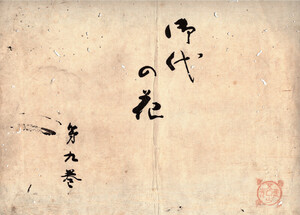 御代
の花
第九巻